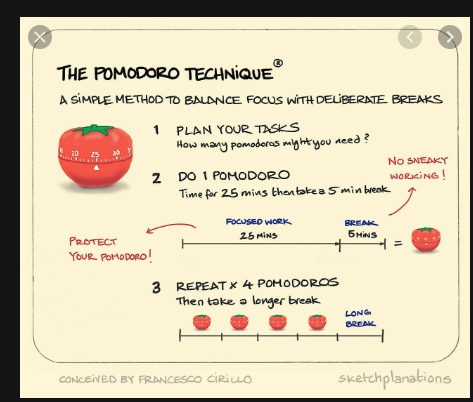 THE POMODORO TECHNIQUE®
A SIMPLE METHOD TO BALANCE FOCUS WITH DELIBERATE BREAKS
1 PLAN YOUR TASKS
How many pomodoros might you need?
15 20 25 30
2 DO 1 POMODORO
Time for 25 mins then take a 5 min break
NO SNEAKY
WORKING!
FOCUSED WORK
25 MINS
BREAK
5 MINS
=
PROTECT
YOUR POMODORO!
3 REPEAT x 4 POMODOROS
Then take a longer break
LONG
BREAK
CONCEIVED BY FRANCESCO CIRILLO
sketchplanations